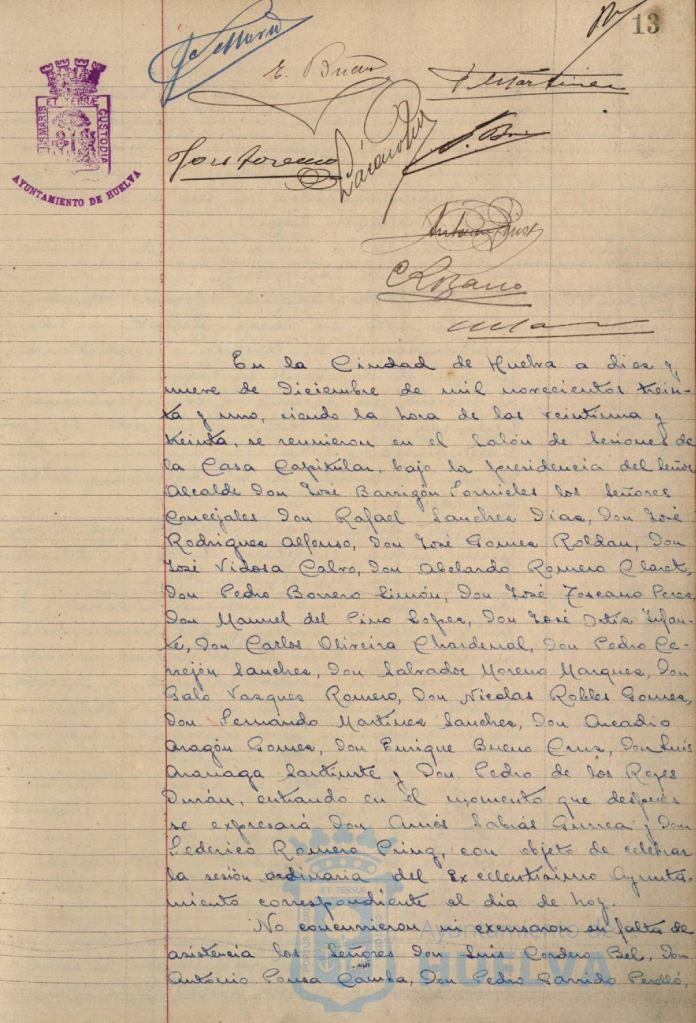 13
E. Bueno
F. Martinez
PORTUS MARIS ET TERRÆ CUSTODIA
AYUNTAMIENTO DE HUELVA
José Toscano
C Lozano
En la Ciudad de Huelva a diez y
nueve de Diciembre de mil novecientos trein-
ta y uno, siendo la hora de las veintiuna y
treinta, se reunieron en el Salón de Sesiones de
la Casa Capitular, bajo la presidencia del Señor
Alcalde Don José Barrigón Fornieles los Señores
Concejales Don Rafael Sanchez Diaz, Don José
Rodriguez Alfonso, Don José Gomez Roldan, Don
José Vidosa Calvo, Don Abelardo Romero Claret,
Don Pedro Borrero Limón, Don José Toscano Perez,
Don Manuel del Pino Lopez, Don José Ortiz Infan-
te, Don Carlos Oliveira Chardenal, Don Pedro Ce-
rrejón Sanchez, Don Salvador Moreno Marquez, Don
Galo Vazquez Romero, Don Nicolas Robles Gomez,
Don Fernando Martinez Sanchez, Don Arcadio
Aragón Gomez, Don Enrique Bueno Cruz, Don Luis
Aranaga Santiuste y Don Pedro de los Reyes
Durán, entrando en el momento que después
se expresará Don Amós Sabrás Gurrea y Don
Federico Romero Prinz, con objeto de celebrar
la sesión ordinaria del Excellentisimo Ayunta-
miento correspondiente al dia de hoy.
No concurrieron ni excusaron su falta de
asistencia los Señores Don Luis Cordero Bel, Don
Antonio Pousa Camba, Don Pedro Garrido Perelló,
ET TERRÆ
Ayuntamiento de
HUELVA